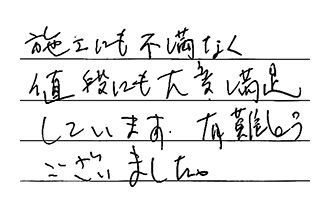 施工にも不満なく
値段にも大変満足
しています。有難う
ございました。